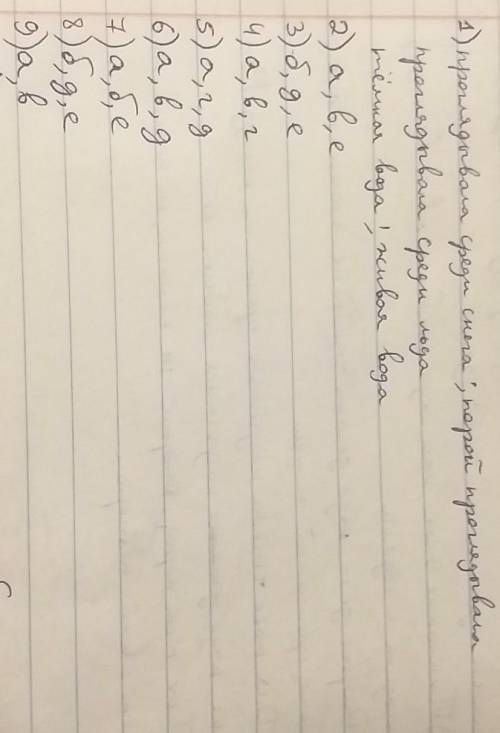 1) проглядывала среди снега; порой проглядывала
проглядывала среди льда
тёмная вода; живая вода
2) а, в, е
3) б, д, е
4) а, в, г
5) а, г, д
6) а, в, д
7) а, б, е
8) б, д, е
9) а, в